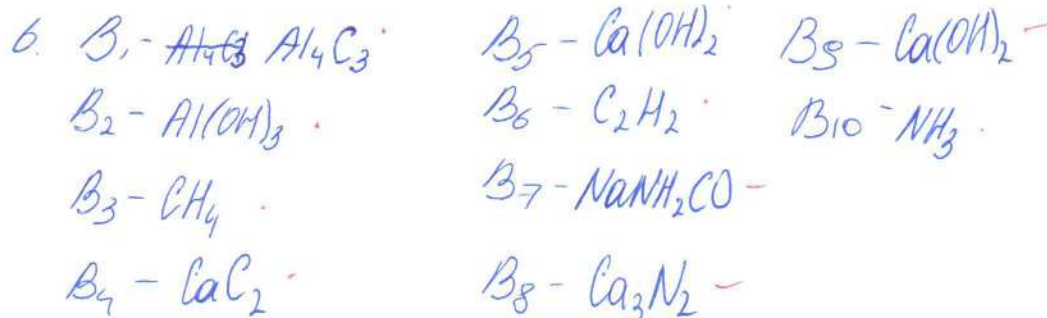 6. B₁ - Al₄C₃ Al₄C₃
B₂ - Al(OH)₃
B₃ - CH₄
B₄ - CaC₂
B₅ - Ca(OH)₂
B₆ - C₂H₂
B₇ - NaNH₂CO
B₈ - Ca₃N₂
B₉ - Ca(OH)₂
B₁₀ - NH₃